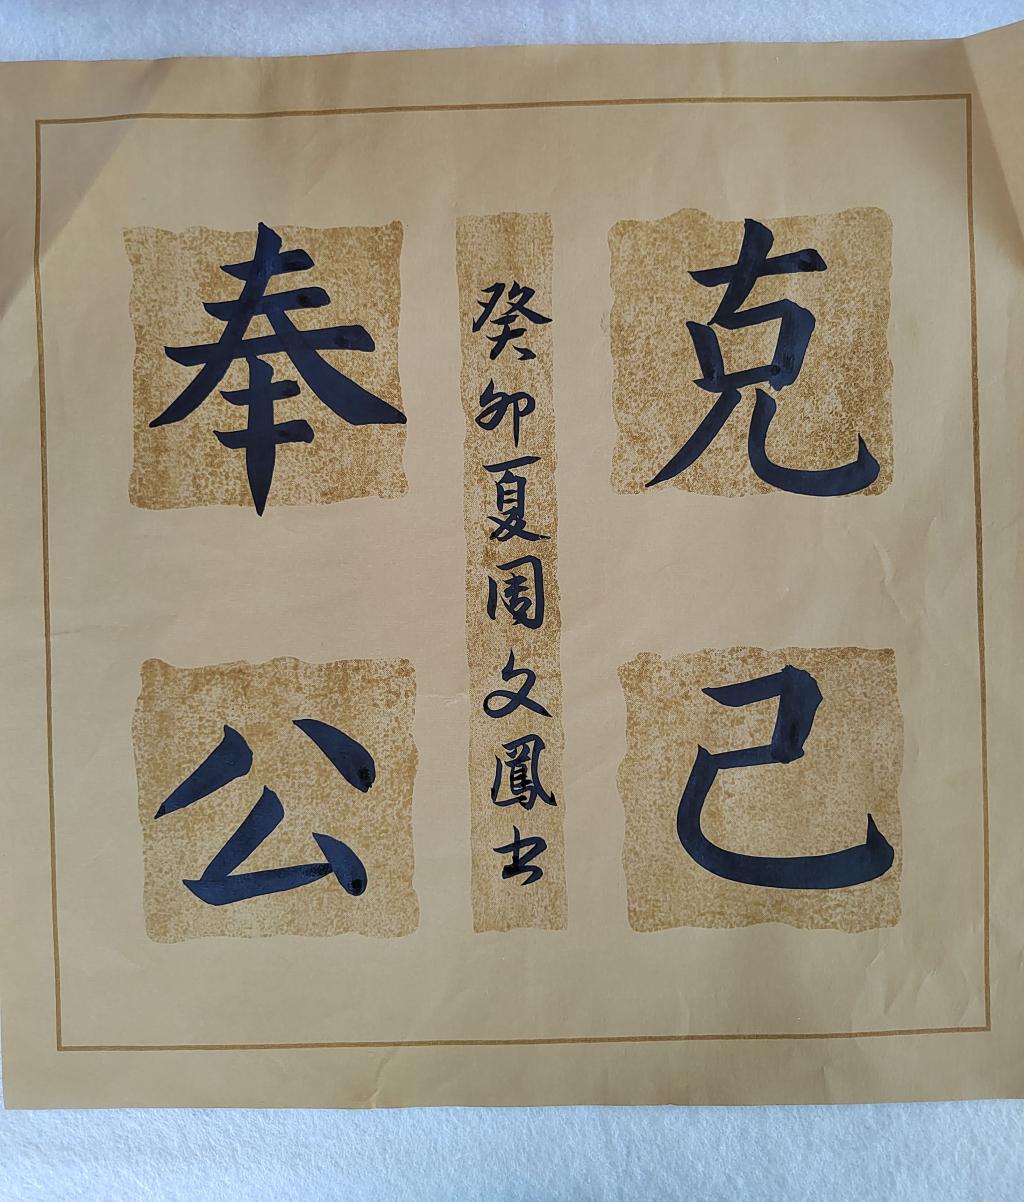 克己
癸卯夏周文鳳书
奉公